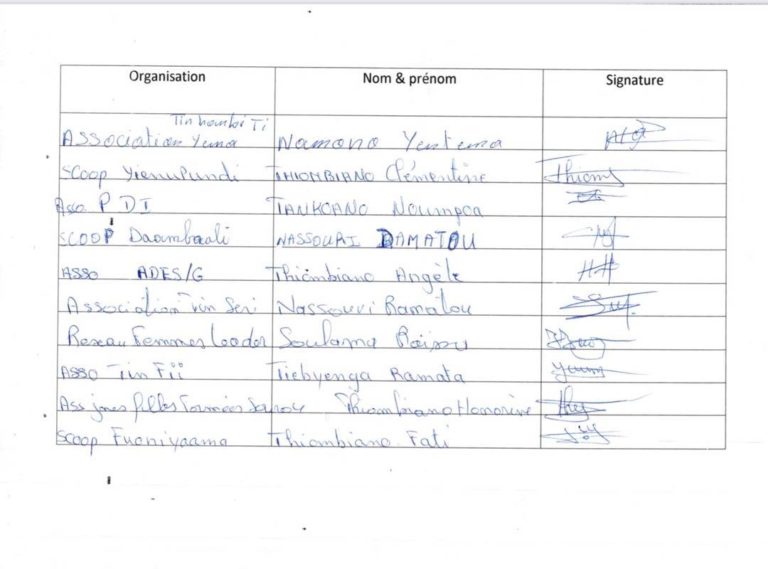 Organisation Nom & prénom Signature
Tinhambi Ti
Association Yema Namono Yentema
SCOOP Yienupundi THIOMBIANO Clémentine Thiom
Asso P D I TANKOANO Noumpoa
SCOOP Daambaali NASSOURI DAMATOU
ASSO ADES/G Thiombiano Angèle
Association Tin Seri Nassouri Ramatou
Reseau Femmes Leader Soulama
ASSO Tin Fii Tiebyenga Ramata
Ass jnes filles Formées Thiombiano Honorine
SCOOP Fuoniyaama Thiombiano Fati